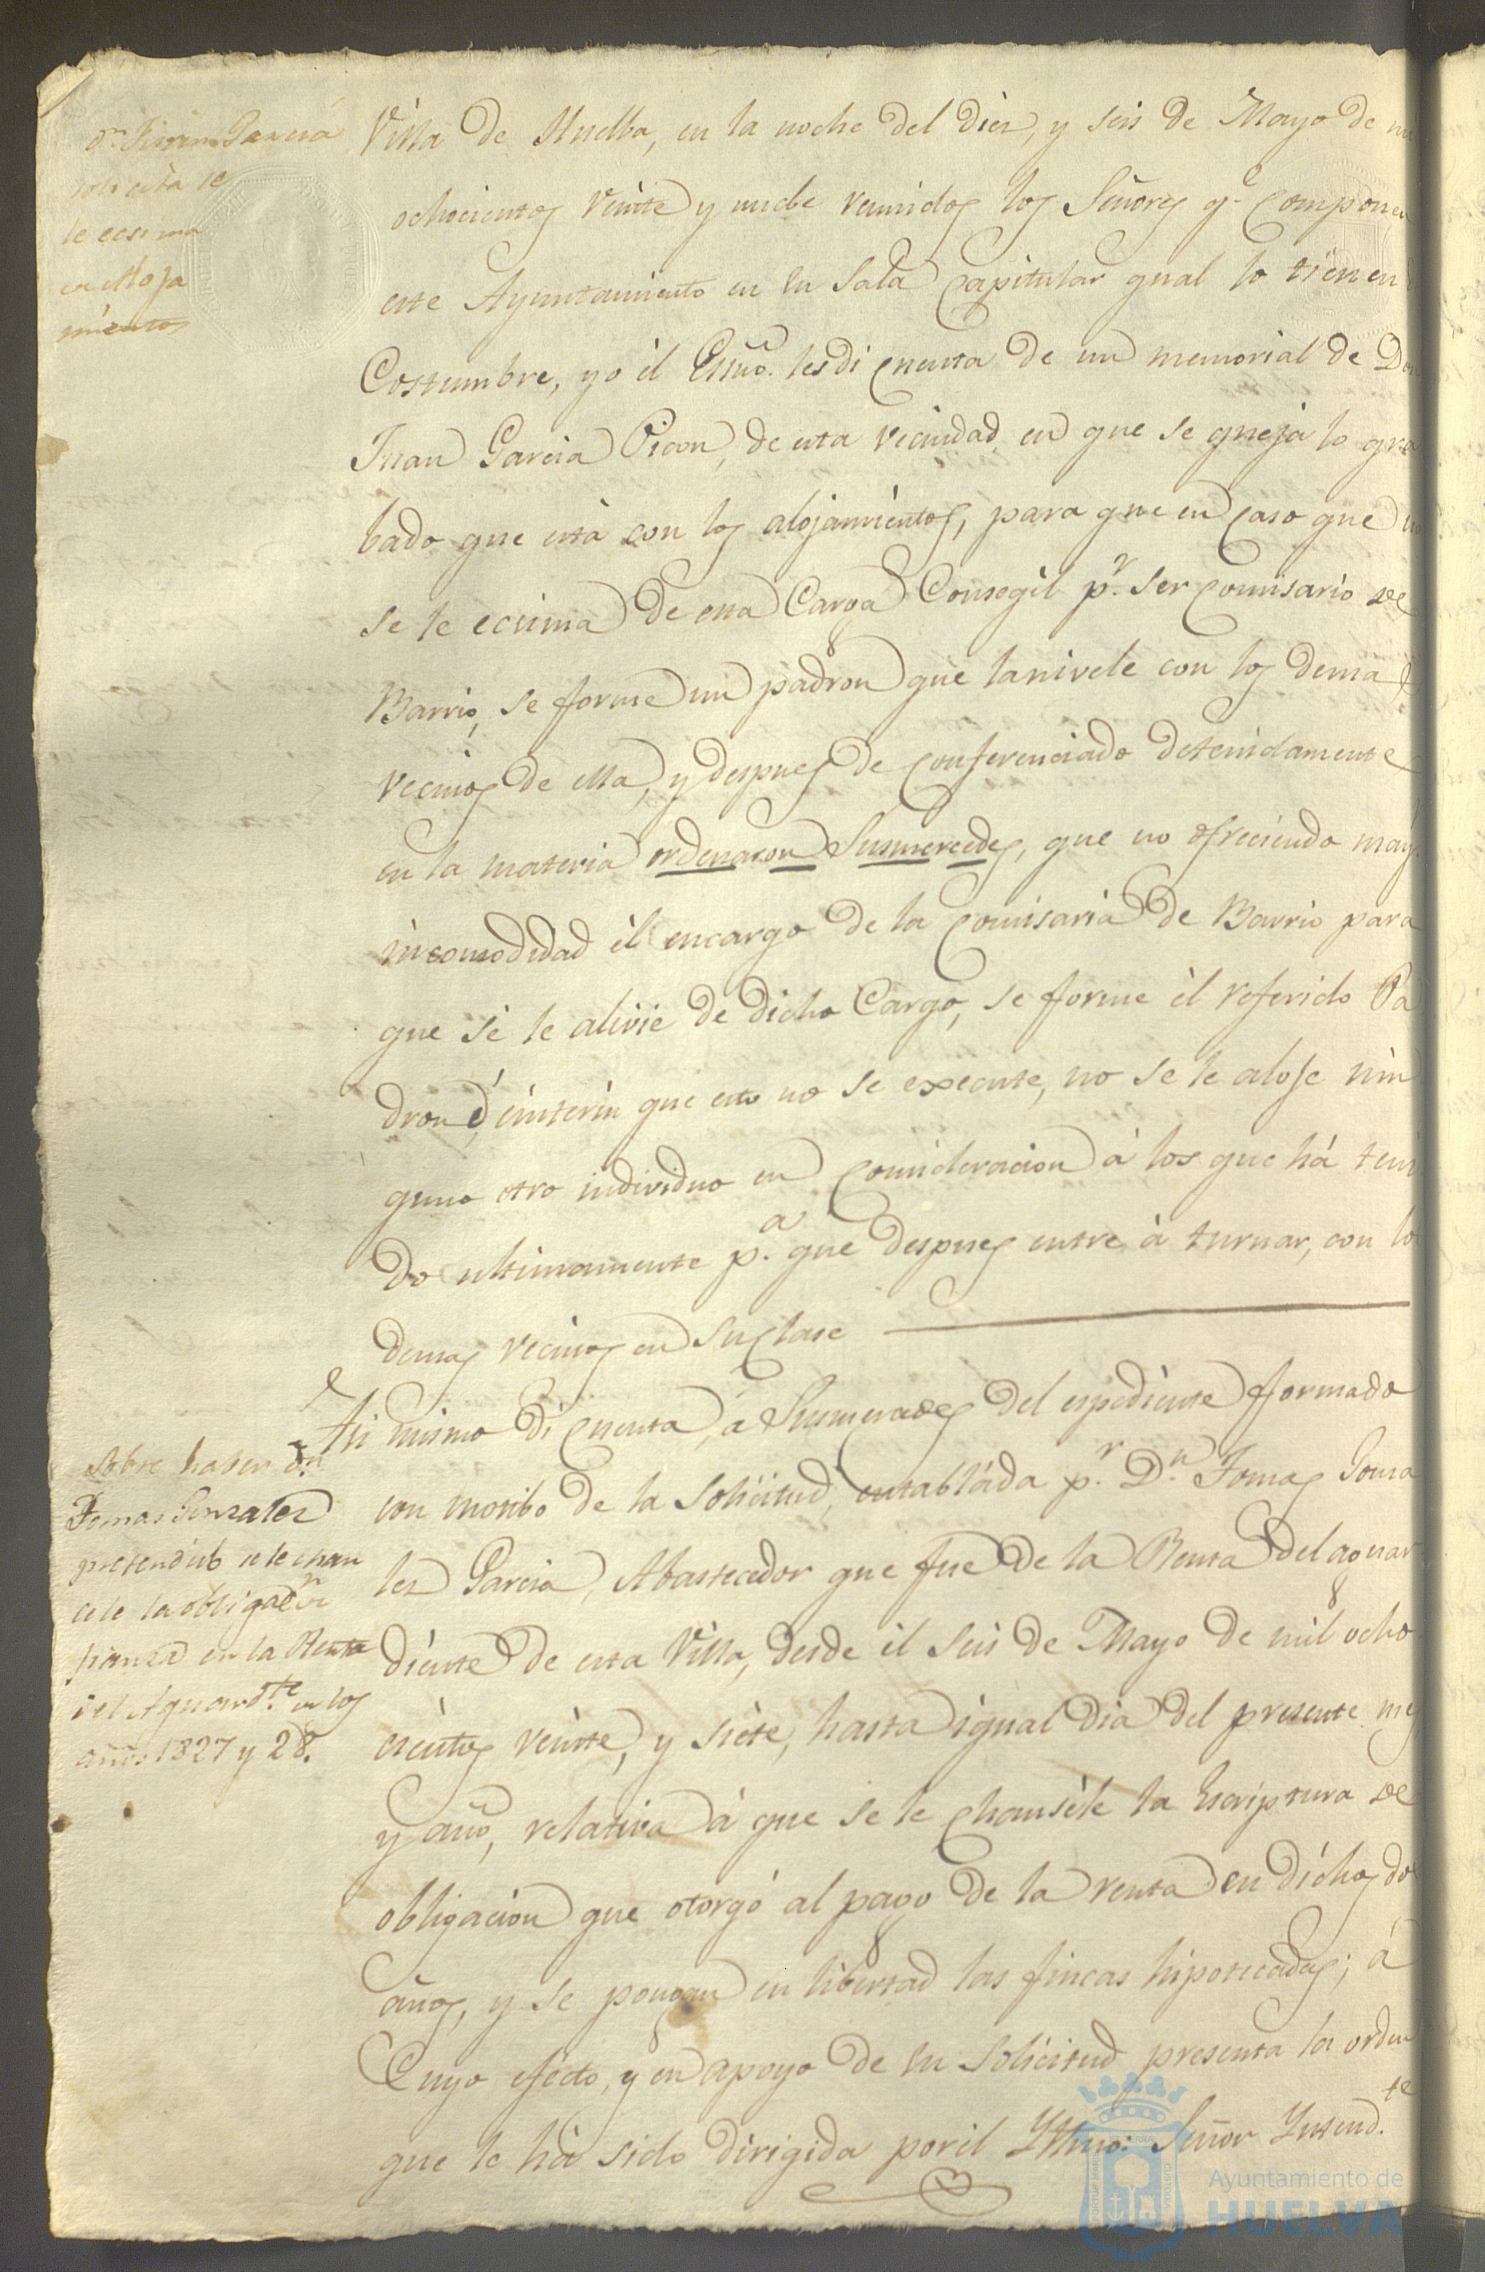 Dn. Juan Garcia
solicita se
le ecsima
en Aloja
mientos
Villa de Huelba, en la noche del dies, y seis de Mayo de
ochocientos veinte y nuebe reunidos los Señores qe. componen
este Ayuntamiento en su Sala Capitular qual lo tienen
Costumbre, yo el Essno. les di cuenta de un memorial de Don
Juan Garcia Picon, de esta vecindad en que se queja lo gra
bado que está con los alojamientos, para que en caso que no
se le ecsima de esa Carga Consegil pr. ser comisario de
Barrio, se forme un padron que lanivele con los demas
vecinos de ella, y despues de conferenciado detenidamente
en la materia ordenaron Susmercedes, que no ofreciendo mayr.
incomodidad él encargo de la comisaria de Barrio para
que se le alivie de dicho Cargo, se forme él referido Pa
dron é, interin que esto no se execute, no se le aloje nin
guno otro individuo en consideracion á los que há teni
do ultimamente pa. que despues entre á turnar, con lo
demas vecinos en su clase
Asi mismo di cuenta, á Susmercedes del espediente formado
con motibo de la Solicitud, entablada pr. Dn. Tomas Gonsa
les Garcia, Abastecedor que fue de la Renta del aguar
diente de esta Villa, desde él seis de Mayo de mil ocho
cientos veinte, y siete, hasta igual dia del presente mes
y año, relativa á que se le chansele la Escriptura de
obligacion que otorgó al pago de la renta en dichos dos
años, y se pongan en libertad las fincas hipotecadas; á
Cuyo efecto, y en apoyo de su Solicitud presenta la orden
que le há sido dirigida por él Yltmo. Señor Yntendte.
Sobre haber Dn.
Tomas Gonzales
pretendido se le chan
cele la obligacn.
fianza en la Renta
del Aguardte. en los
años 1827 y 28.
Ayuntamiento de
HUELVA